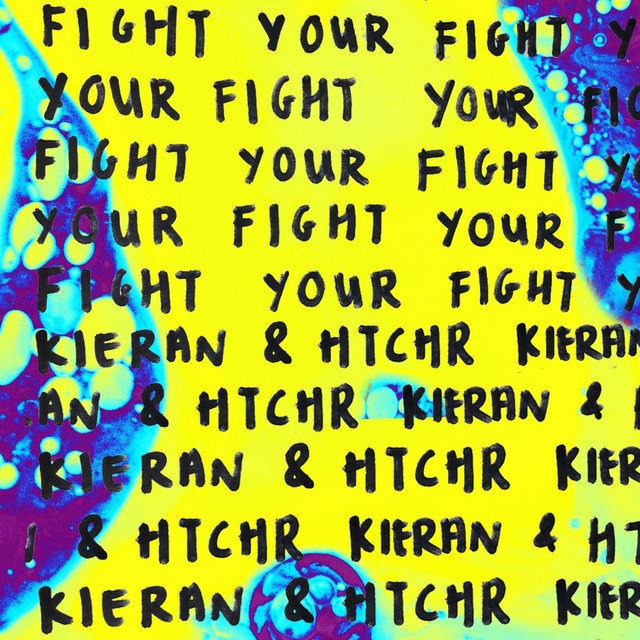 FIGHT YOUR FIGHT Y
YOUR FIGHT YOUR FIG
FIGHT YOUR FIGHT YO
YOUR FIGHT YOUR F
FIGHT YOUR FIGHT Y
KIERAN & HTCHR KIERAN
AN & HTCHR KIERAN &
KIERAN & HTCHR KIER
& HTCHR KIERAN & HT
KIERAN & HTCHR KIER